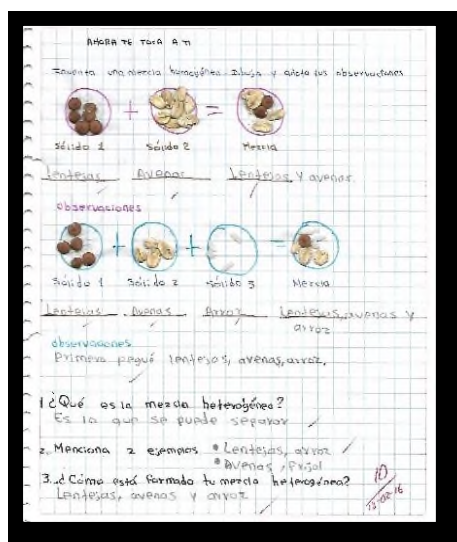 AHORA TE TOCA A TI
Inventa una mezcla homogénea. Dibuja y anota tus observaciones
Sólido 1 Sólido 2 Mezcla
Lentejas Avenas Lentejas y avenas.
observaciones
Sólido 1 Sólido 2 Sólido 3 Mezcla
Lentejas Avenas Arroz Lentejas, avenas y
arroz
observaciones
Primero pegué lentejas, avenas, arroz.
1 ¿Qué es la mezcla heterogénea?
Es la que se puede separar
2. Menciona 2 ejemplos • Lentejas, arroz
• Avenas, Frijol
3. ¿Cómo está formado tu mezcla heterogénea?
Lentejas, avenas y arroz
10
12-02-16